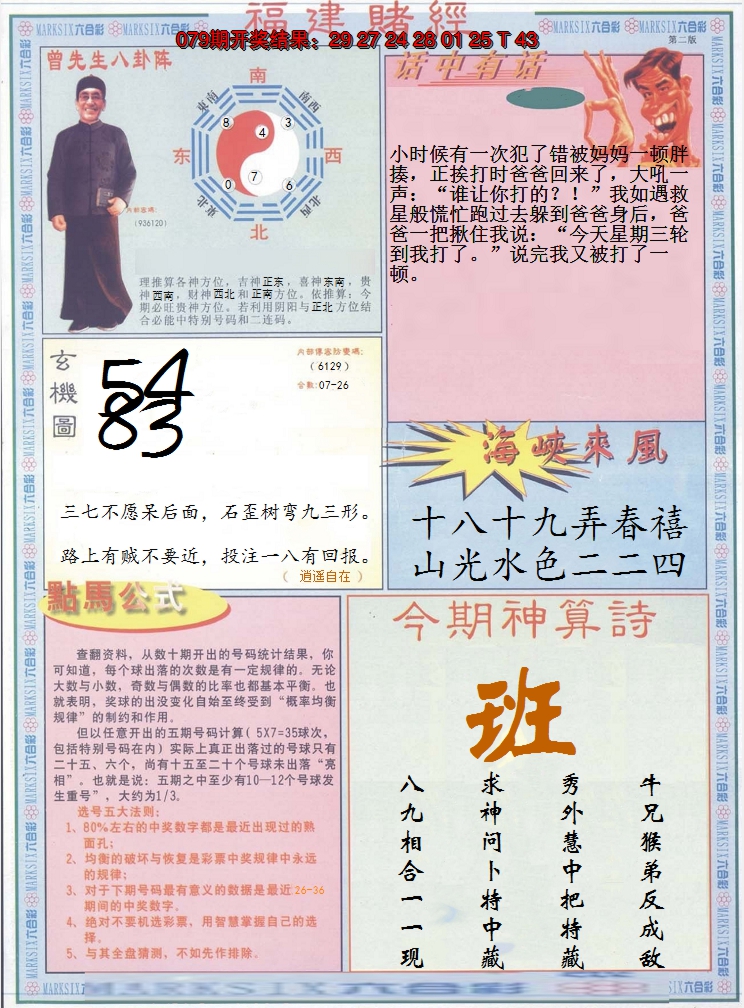 福建賭經
079期开奖结果：29 27 24 28 01 25 T 43
MARKSIX六合彩
第二版
曾先生八卦阵
南
東南
南西
8
3
4
东
西
7
0
6
東北
北西
北
內部密碼:
(936120)
理推算各神方位，吉神正东，喜神东南，贵
神西南，财神西北和正南方位。依推算：今
期必旺贵神方位。若利用阴阳与正北方位结
合必能中特别号码和二连码。
话中有话
小时候有一次犯了错被妈妈一顿胖
揍，正挨打时爸爸回来了，大吼一
声：“谁让你打的？！”我如遇救
星般慌忙跑过去躲到爸爸身后，爸
爸一把揪住我说：“今天星期三轮
到我打了。”说完我又被打了一
顿。
玄機圖
54
83
(6129)
合數:07-26
三七不愿呆后面，石歪树弯九三形。
路上有贼不要近，投注一八有回报。
（ 逍遥自在 ）
海峽來風
十八十九弄春禧
山光水色二二四
點馬公式
查翻资料，从数十期开出的号码统计结果，你
可知道，每个球出落的次数是有一定规律的。无论
大数与小数，奇数与偶数的比率也都基本平衡。也
就表明，奖球的出没变化自始至终受到“概率均衡
规律”的制约和作用。
但以任意开出的五期号码计算( 5X7=35球次，
包括特别号码在内) 实际上真正出落过的号球只有
二十五、六个，尚有十五至二十个号球未出落“亮
相”。也就是说：五期之中至少有10—12个号球发
生重号”，大约为1/3。
选号五大法则：
1、80%左右的中奖数字都是最近出现过的熟
面孔；
2、均衡的破坏与恢复是彩票中奖规律中永远
的规律；
3、对于下期号码最有意义的数据是最近26-36
期间的中奖数字。
4、绝对不要机选彩票，用智慧掌握自己的选
择。
5、与其全盘猜测，不如先作排除。
今期神算詩
班
牛兄猴弟反成敌
秀外慧中把特藏
求神问卜特中藏
八九相合一一现